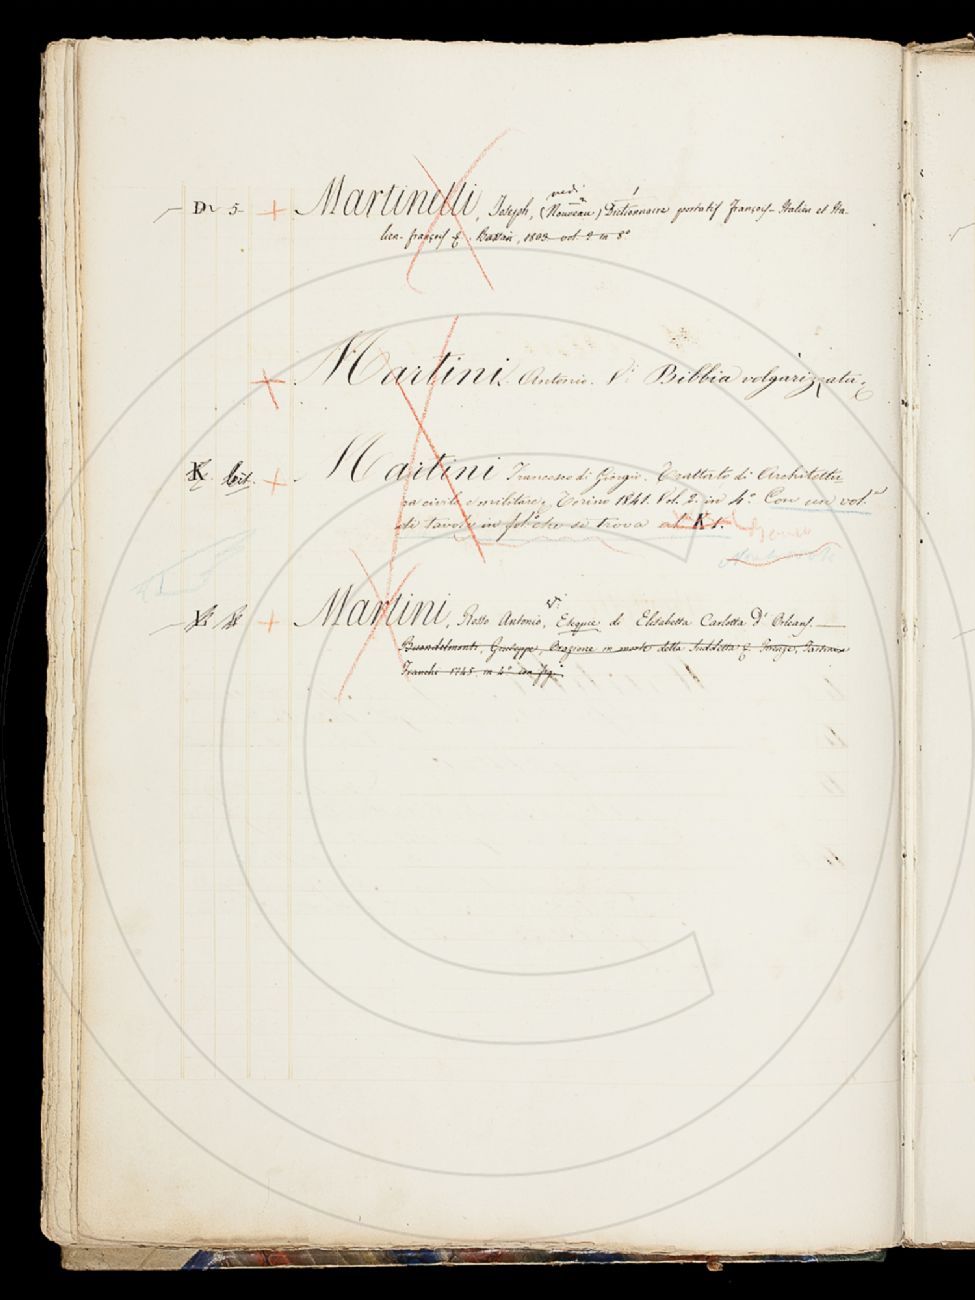 D. 5 + Martinelli, Joseph, (Nouveau) Dictionnaire portatif François-Italien et Ita-
vedi
lien-françois &. Bassan, 1803 vol. 2 in 8°
+ Martini. Antonio. V: Bibbia volgarizzata.
K bis. + Martini Francesco di Giorgio. Trattato di Architettu
ra civile e militare. Torino 1841. Vol. 2. in 4°. Con un vol.e
di tavole in fol° che si trova al K 1.
+ Martini, Rosso Antonio, V: Esequie di Elisabetta Carlotta d' Orleans.
Buondelmonti, Giuseppe, Orazione in morte della Suddetta &. Firenze, Tartini e
Franchi 1745. in 4° con fig.